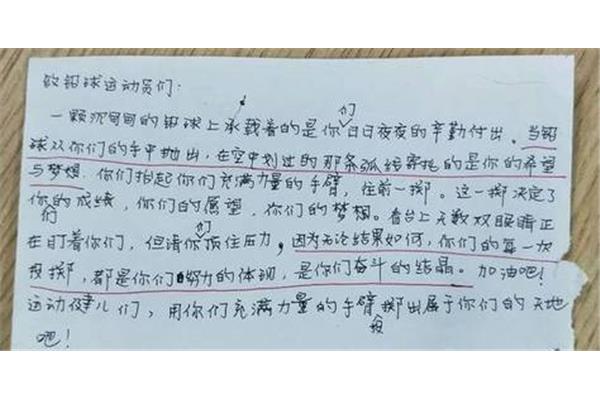 致铅球运动员们:
一颗沉甸甸的铅球上承载着的是你们日日夜夜的辛勤付出。当铅
球从你们的手中抛出,在空中划过的那条弧线寄托的是你的希望
与梦想。你们抬起你们充满力量的手臂,往前一掷。这一掷决定了
你们的成绩,你们的愿望,你们的梦想。看台上无数双眼睛正
在盯着你们,但请你们顶住压力,因为无论结果如何,你们的每一次
投掷,都是你们努力的体现,是你们奋斗的结晶。加油吧!
运动健儿们,用你们充满力量的手臂投掷出属于你们的天地
吧!